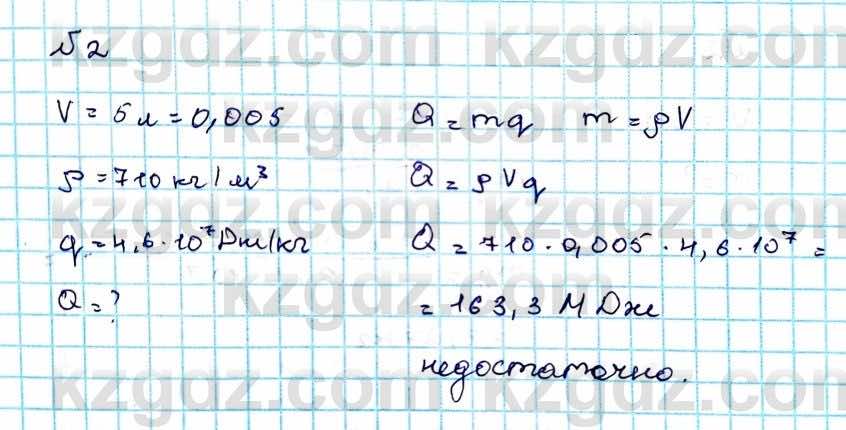 №2
V = 5 л = 0,005
ρ = 710 кг/м³
q = 4,6·10⁷ Дж/кг
Q = ?
Q = mq m = ρV
Q = ρVq
Q = 710·0,005·4,6·10⁷ =
= 163,3 МДж
недостаточно.
kzgdz.com
kzgdz.com
kzgdz.com
kzgdz.com
kzgdz.com
kzgdz.com